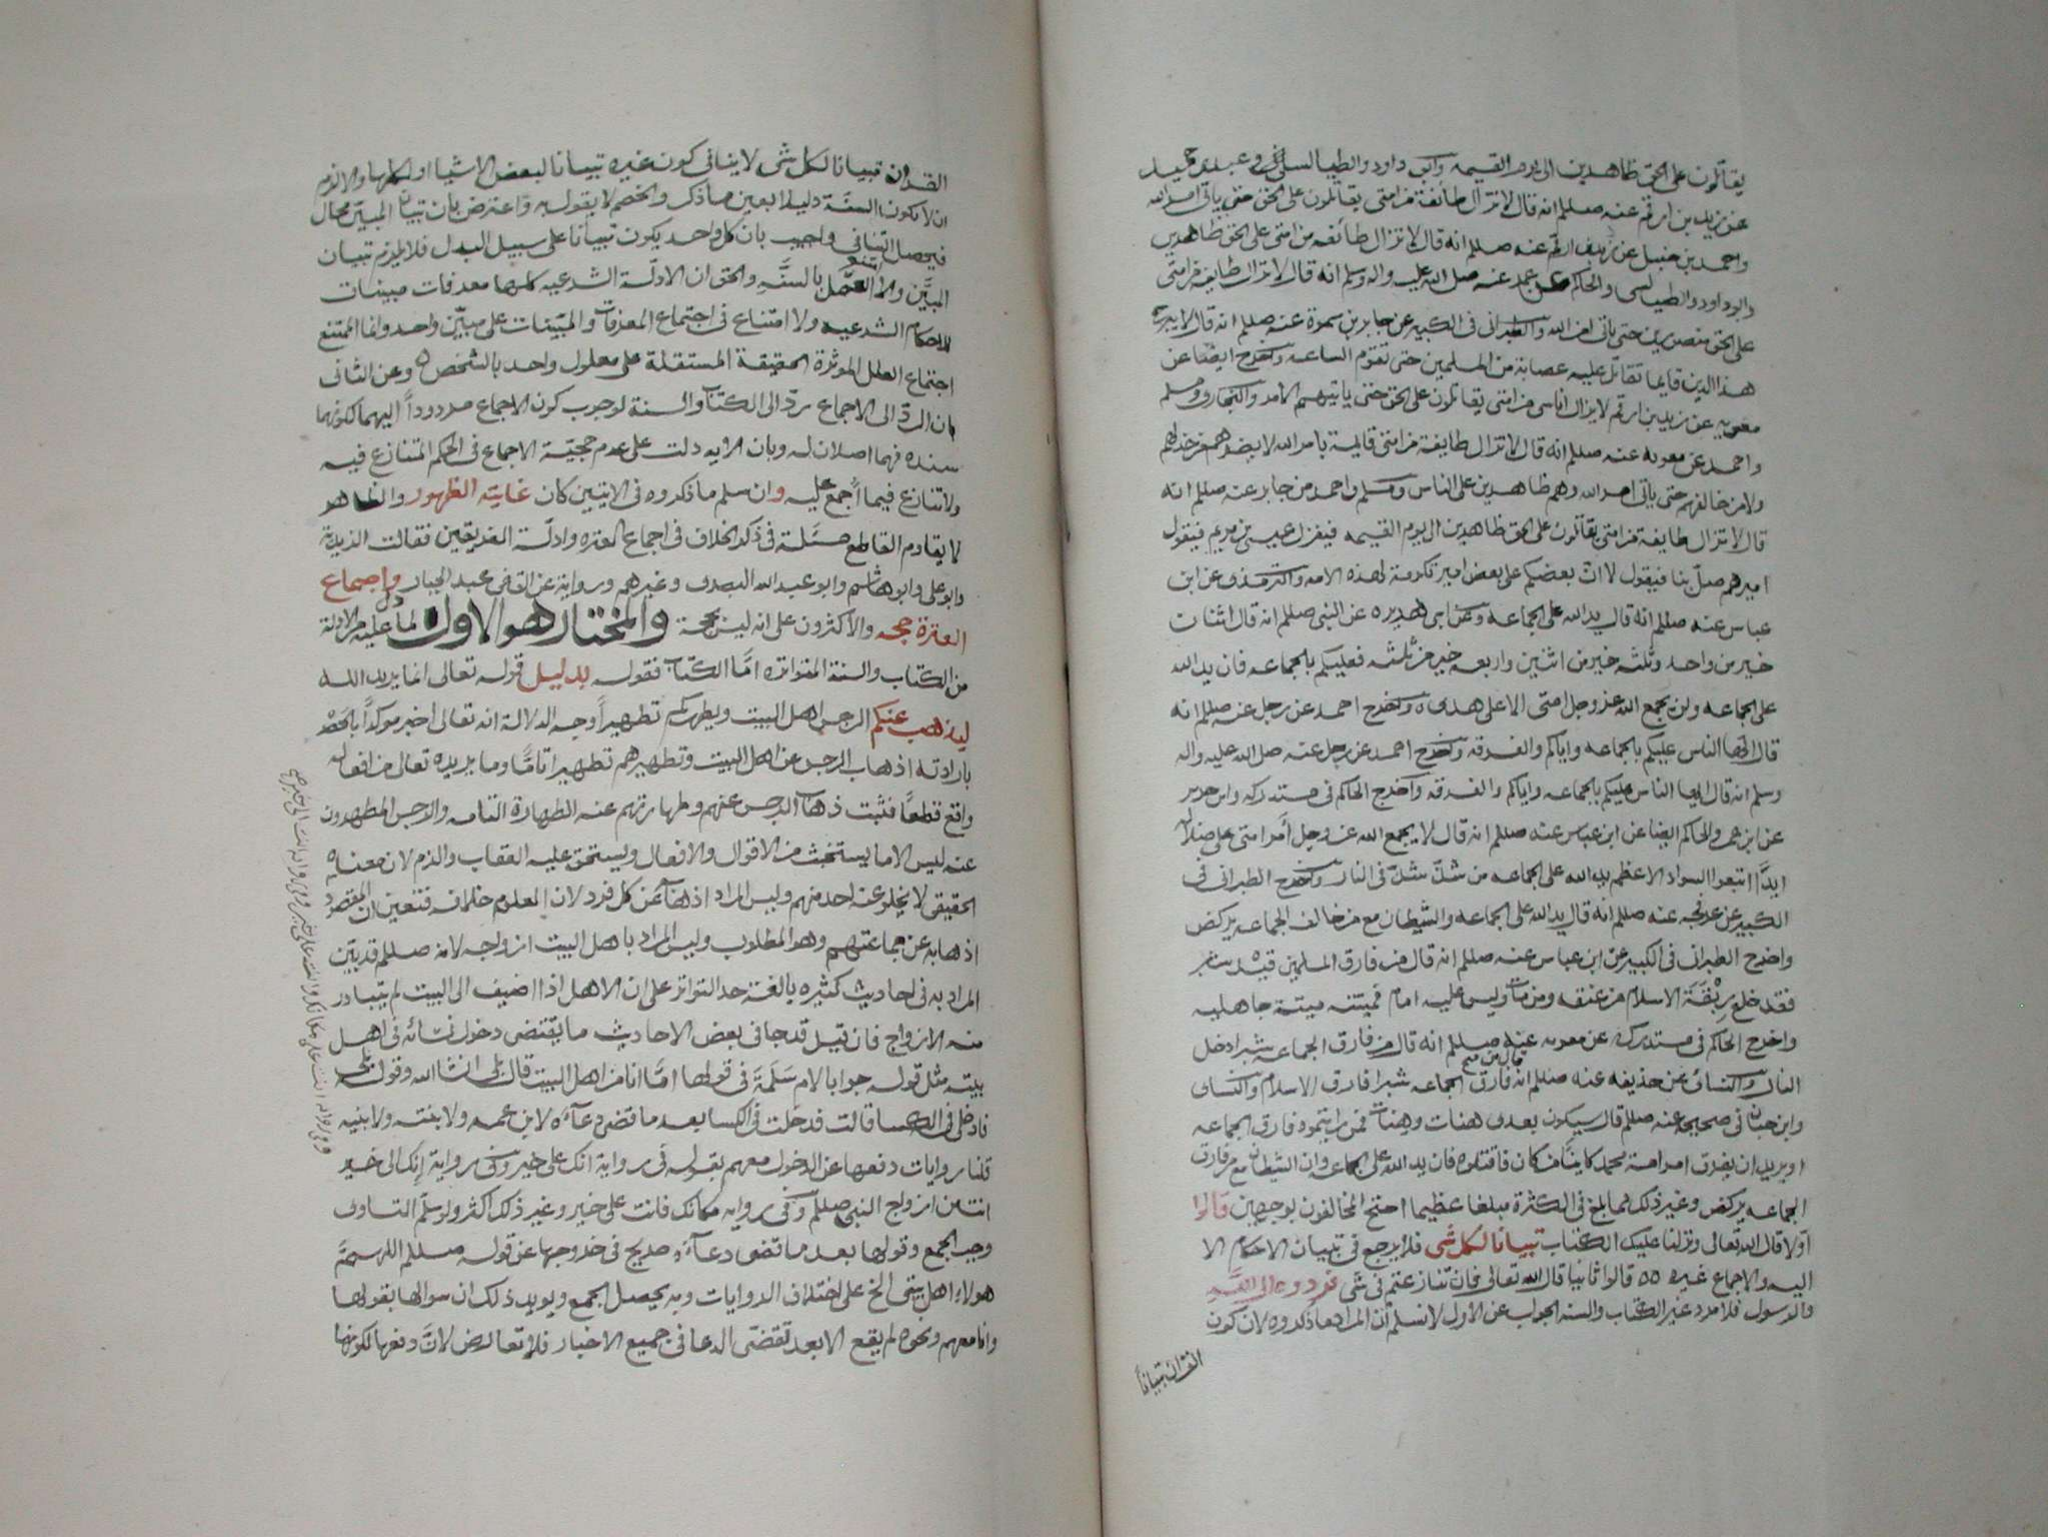 يقاتلون على الحق ظاهرين الى يوم القيمه وابو داود والطيالسي وعبد بن حميد
عن زيد بن ارقم عنه صللم انه قال لا تزال طائفة من امتي يقاتلون على الحق حتى ياتي امر الله
واحمد بن حنبل عن زيد بن ارقم عنه صللم انه قال لا تزال طائفه من امتي على الحق ظاهرين
وابو داود والطيالسي والحاكم عن عمر عنه صلى الله عليه واله وسلم انه قال لا تزال طايفة من امتي
على الحق منصورين حتى ياتي امر الله والطبراني في الكبير عن جابر بن سمرة عنه صللم انه قال لا يبرح
هذا الدين قايما تقاتل عليه عصابة من المسلمين حتى تقوم الساعه وتخرج ايضا عن
معويه عن زيد بن ارقم لا يزال اناس من امتي يقاتلون على الحق حتى ياتيهم الامر والبخاري ومسلم
واحمد عن معويه عنه صللم انه قال لا تزال طايفة من امتي قايمة بامر الله لا يضرهم من خذلهم
ولا من خالفهم حتى ياتي امر الله وهم ظاهرين على الناس ومسلم واحمد من جابر عنه صللم انه
قال لا تزال طايفة من امتي يقاتلون على الحق ظاهرين الى يوم القيمه فينزل عيسى بن مريم فيقول
اميرهم صلّ بنا فيقول لا انّ بعضكم على بعض امير تكرمة لهذه الامه والترمذي عن ابن
عباس عنه صللم انه قال يد الله على الجماعه وعن ابي هريره عن النبي صللم انه قال اثنان
خير من واحد وثلثه خير من اثنين واربعه خير من ثلثه فعليكم بالجماعه فان يد الله
على الجماعه ولن يجمع الله عز وجل امتي الا على هدى ه وتخرج احمد عن رجل عنه صللم انه
قال ايها الناس عليكم بالجماعه واياكم والفرقه وتخرج احمد عن رجل عنه صلى الله عليه واله
وسلم انه قال ايها الناس عليكم بالجماعه واياكم والفرقه واخرج الحاكم في مستدركه وابن جرير
عن ابن عمر والحاكم ايضا عن ابن عباس عنه صللم انه قال لا يجمع الله عز وجل أمر امتي على ضلاله
ابدًا اتبعوا السواد الاعظم يد الله على الجماعه من شذّ شذّ في النار وتخرج الطبراني في
الكبير عن عرفجه عنه صللم انه قال يد الله على الجماعه والشيطان مع من خالف الجماعه يركض
واخرج الطبراني في الكبير عن ابن عباس عنه صللم انه قال من فارق المسلمين قيد شبر
فقد خلع ربقة الاسلام من عنقه ومن مات وليس عليه امام فميتته ميتة جاهليه
واخرج الحاكم في مستدركه عن معويه عنه صللم انه قال من فارق الجماعه شبرا دخل
النار والنسائي عن حذيفه عنه صللم انه قال من فارق الجماعه شبرا فارق الاسلام والنساي
وابن حبان في صحيحه عنه صللم قال سيكون بعدي هنات وهنات فمن رايتموه فارق الجماعه
او يريد ان يفرق امر امة محمد كاينًا من كان فاقتلوه فان يد الله على الجماعه وان الشيطان مع من فارق
الجماعه يركض وغير ذلك مما بلغ في الكثرة مبلغا عظيما احتج المخالفون بوجهين قالوا
اولا قال الله تعالى ونزلنا عليك الكتاب تبيانا لكل شي فلا يرجع في تبيان الاحكام الا
اليه والاجماع غيره ه ه قالوا ثانيا قال الله تعالى فان تنازعتم في شي فردوه الى الله
والرسول فلا مرد غير الكتاب والسنه الجواب عن الاول لا نسلم أن المراد ما ذكروه لان كون
القران تبيانا
القران تبيانا لكل شي لا ينافي كون غيره تبيانا لبعض الاشيا او لكلها والا لزم
ان لا تكون السنّة دليلا بعين ما ذكر والخصم لا يقول به واعترض بان تبيان المبيّن محال
فيحصل التنافي واجيب بان كل واحد يكون تبيانا على سبيل البدل فلا يلزم تبيان
المبيّن والا امتنع العمل بالسنّه والحق ان الادلّة الشرعيه كلها معرفات مبينات
للاحكام الشرعيه ولا امتناع في اجتماع المعرفات والمبيّنات على مبيّن واحد وانما الممتنع
اجتماع العلل الموثرة الحقيقة المستقلة على معلول واحد بالشخص ه وعن الثاني
بان الردّ الى الاجماع ردّ الى الكتاب والسنة لوجوب كون الاجماع مردودا اليهما لكونهما
سنده فهما اصلان له وبان الايه دلت على عدم حجيّة الاجماع في الحكم المتنازع فيه
ولا تنازع فيما اجمع عليه وان سلم ما ذكروه في الايتين كان غايته الظهور والظاهر
لا يقاوم القاطع مسئلة في ذكر الخلاف في اجماع العتره وادلّة الفريقين فقالت الزيدية
وابو علي وابو هاشم وابو عبد الله البصري وغيرهم ورواية عن القاضي عبد الجبار واجماع
العترة حجه والاكثرون على انه ليس بحجة والمختار هو الاول لما دل عليه من الادلة
من الكتاب والسنة المتواتره امّا الكتاب فقوله بدليل قوله تعالى انما يريد الله
ليذهب عنكم الرجس اهل البيت ويطهركم تطهيراً وجه الدلالة انه تعالى اخبر موكداً بالحصر
بارادته اذهاب الرجس عن اهل البيت وتطهيرهم تطهيرا تامّا وما يريده تعالى من افعاله
واقع قطعًا فثبت ذهاب الرجس عنهم وطهارتهم عنه الطهارة التامه والرجس المطهرون
عنه ليس الا ما يستخبث من الاقوال والافعال ويستحق عليه العقاب والذم لان معناه
الحقيقي لا يخلو عنه احد منهم وليس المراد اذهابه عن كل فرد لان المعلوم خلافه فتعين ان المقصود
اذهابه عن جماعتهم وهو المطلوب وليس المراد باهل البيت ازواجه لانه صللم قد بيّن
المراد به في احاديث كثيره بالغة حد التواتر على ان الاهل اذا اضيف الى البيت لم يتبادر
منه الازواج فان قيل قد جا في بعض الاحاديث ما يقتضي دخول نسائه في اهل
بيته مثل قوله جوابا لام سلمة في قولها امّا انا من اهل البيت قال بلى ان شا الله وقوله بلى
فادخلي في الكسا قالت فدخلت في الكسا بعد ما قضى دعاءه لابن عمه ولابنته ولابنيه
قلنا روايات دفعها عن الدخول معهم بقوله في رواية انك على خير وفي رواية إنك الى خير
انت من ازواج النبي صللم وفي روايه مكانك فانت على خير وغير ذلك اكثر ولو سلّم التساوي
وجب الجمع وقولها بعد ما قضى دعاءه صريح في خروجها عن قوله صللم اللهمّ
هولاء اهل بيتي الخ على اختلاف الروايات وبه يحصل الجمع ويويد ذلك ان سوالها بقولها
وانا معهم ونحوه لم يقع الا بعد تقضي الدعا في جميع الاخبار فلا تعارض لانّ دفعها لكونها